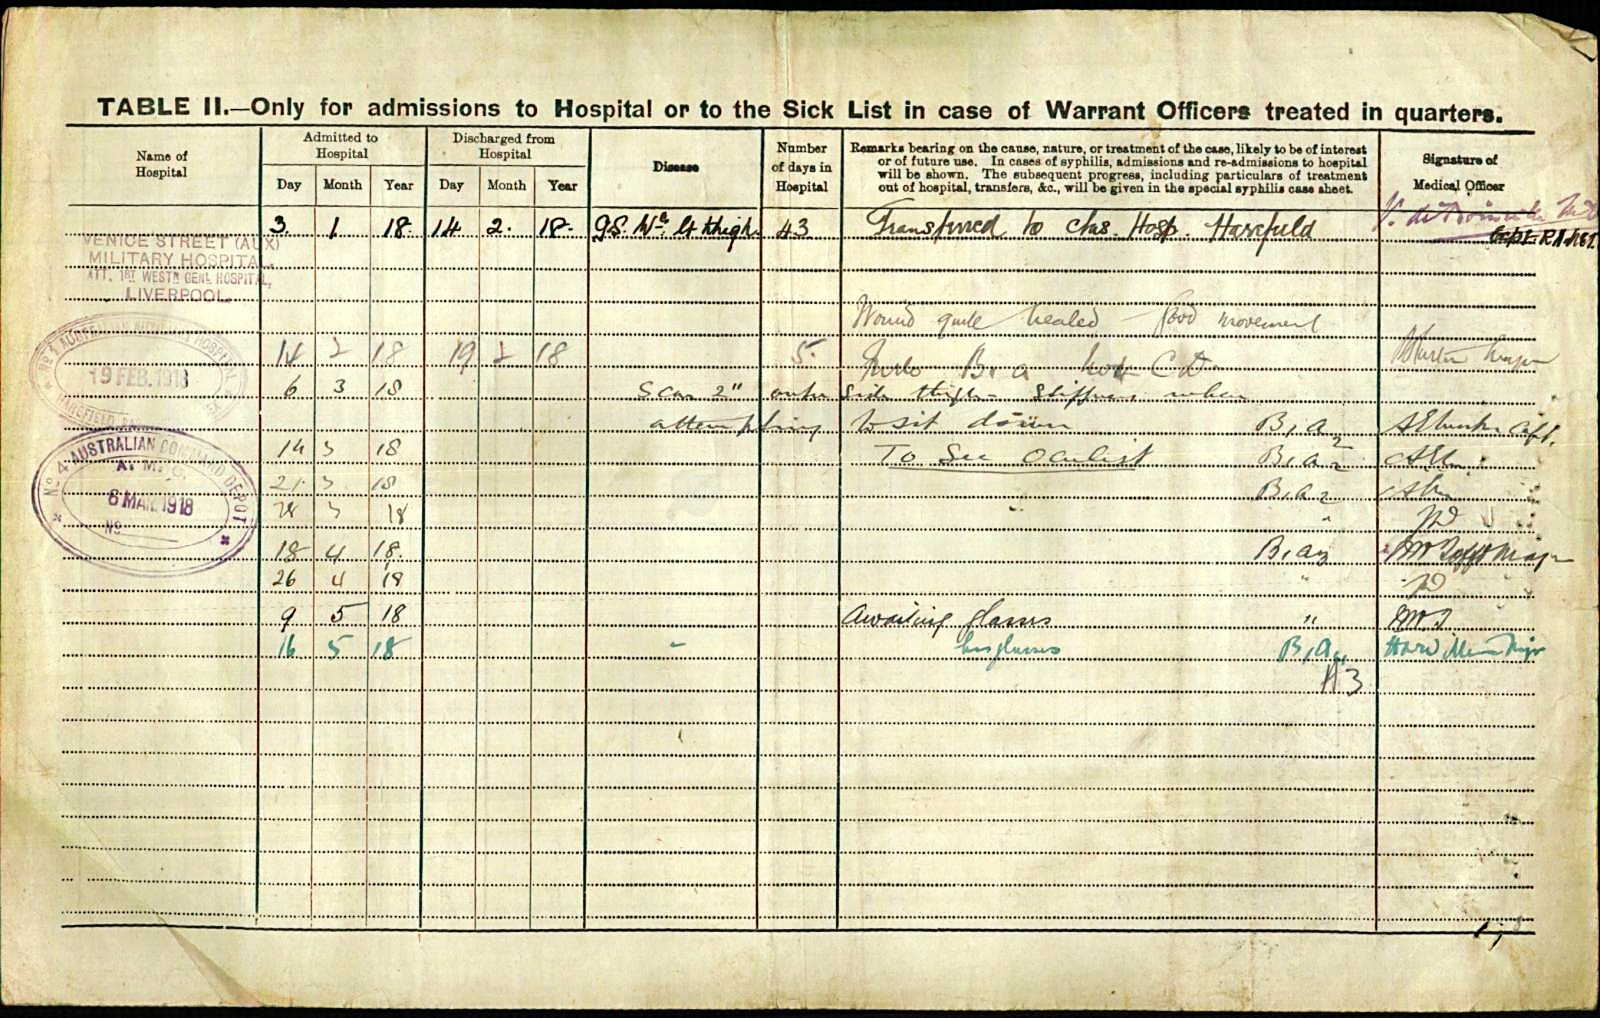 TABLE II.—Only for admissions to Hospital or to the Sick List in case of Warrant Officers treated in quarters.
Name of Hospital
Admitted to Hospital
Discharged from Hospital
Disease
Number of days in Hospital
Remarks bearing on the cause, nature, or treatment of the case, likely to be of interest
or of future use. In cases of syphilis, admissions and re-admissions to hospital
will be shown. The subsequent progress, including particulars of treatment
out of hospital, transfers, &c., will be given in the special syphilis case sheet.
Signature of Medical Officer
Day Month Year Day Month Year
3 1 18 14 2 18 G.S. Wd. Lt thigh 43 Transferred to Aus. Hosp. Harefield
Capt. R.A.M.C.T.
VENICE STREET (AUX)
MILITARY HOSPITAL,
ATT. 1ST WESTN GENL HOSPITAL,
LIVERPOOL.
Wound quite healed good movement
14 2 18 19 2 18 5. B1a C.D.
No 1 AUSTRALIAN AUXILIARY HOSPITAL
19 FEB. 1918
HAREFIELD
6 3 18 Scar 2" outer side thigh - Stiffness when
attempting to sit down B1a2 Capt.
14 3 18 To See Oculist B1a2
No 4 AUSTRALIAN COMMAND DEPOT
A.M.C.
6 MAR 1918
No
21 3 18 B1a2
28 3 18 "
18 4 18 B1a3 Major
26 4 18 "
9 5 18 Awaiting glasses "
16 5 18 has glasses B1a4 Major
A3